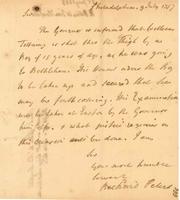 Philadelphia, 9 July 1757
Sir
The Governor is informed that
Teedyuscung is shot thro the Thigh by a
Boy of 15 years of age, as he was going
to Bethlehem. His Honour desires the Boy
to be taken up and secured that he
may be forthcoming. His Examination
may be taken at Easton by the Governor
himself, & what justice requires on
this occasion will be done. I am
Sir
Your most humble
Servant
Richard Peters